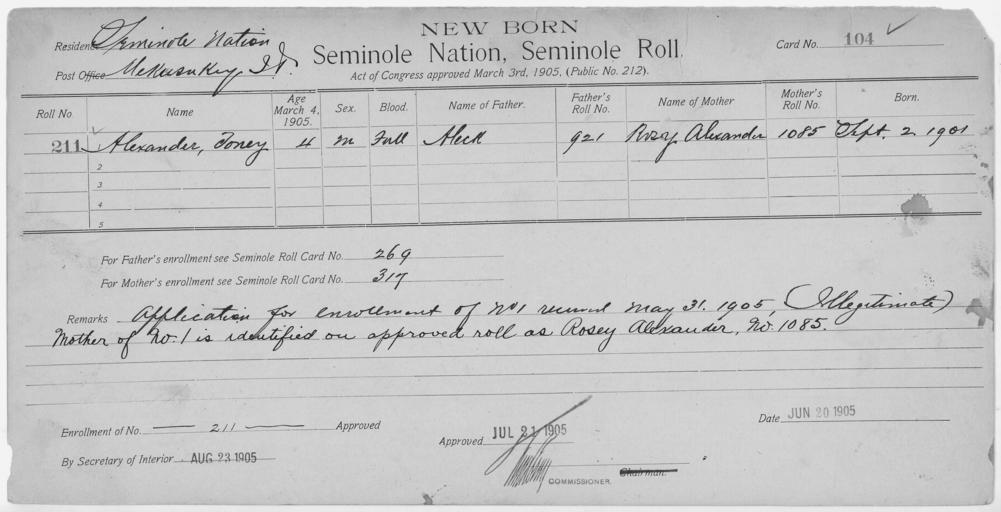 NEW BORN
Seminole Nation, Seminole Roll.
Act of Congress approved March 3rd, 1905, (Public No. 212).
Residence Seminole Nation
Post Office Mekusukey, I.T.
Card No. 104
Roll No. Name Age March 4, 1905. Sex. Blood. Name of Father. Father's Roll No. Name of Mother Mother's Roll No. Born.
211 Alexander, Toney 4 M Full Aleck 921 Rosey Alexander 1085 Sept. 2 1901
2
3
4
5
For Father's enrollment see Seminole Roll Card No. 269
For Mother's enrollment see Seminole Roll Card No. 317
Remarks Application for enrollment of No1 received May 31. 1905, (Illegitimate)
Mother of No. 1 is identified on approved roll as Rosey Alexander, No. 1085.
Enrollment of No. 211 Approved
By Secretary of Interior AUG 23 1905
Approved JUL 21 1905
Chairman.
COMMISSIONER.
Date JUN 20 1905